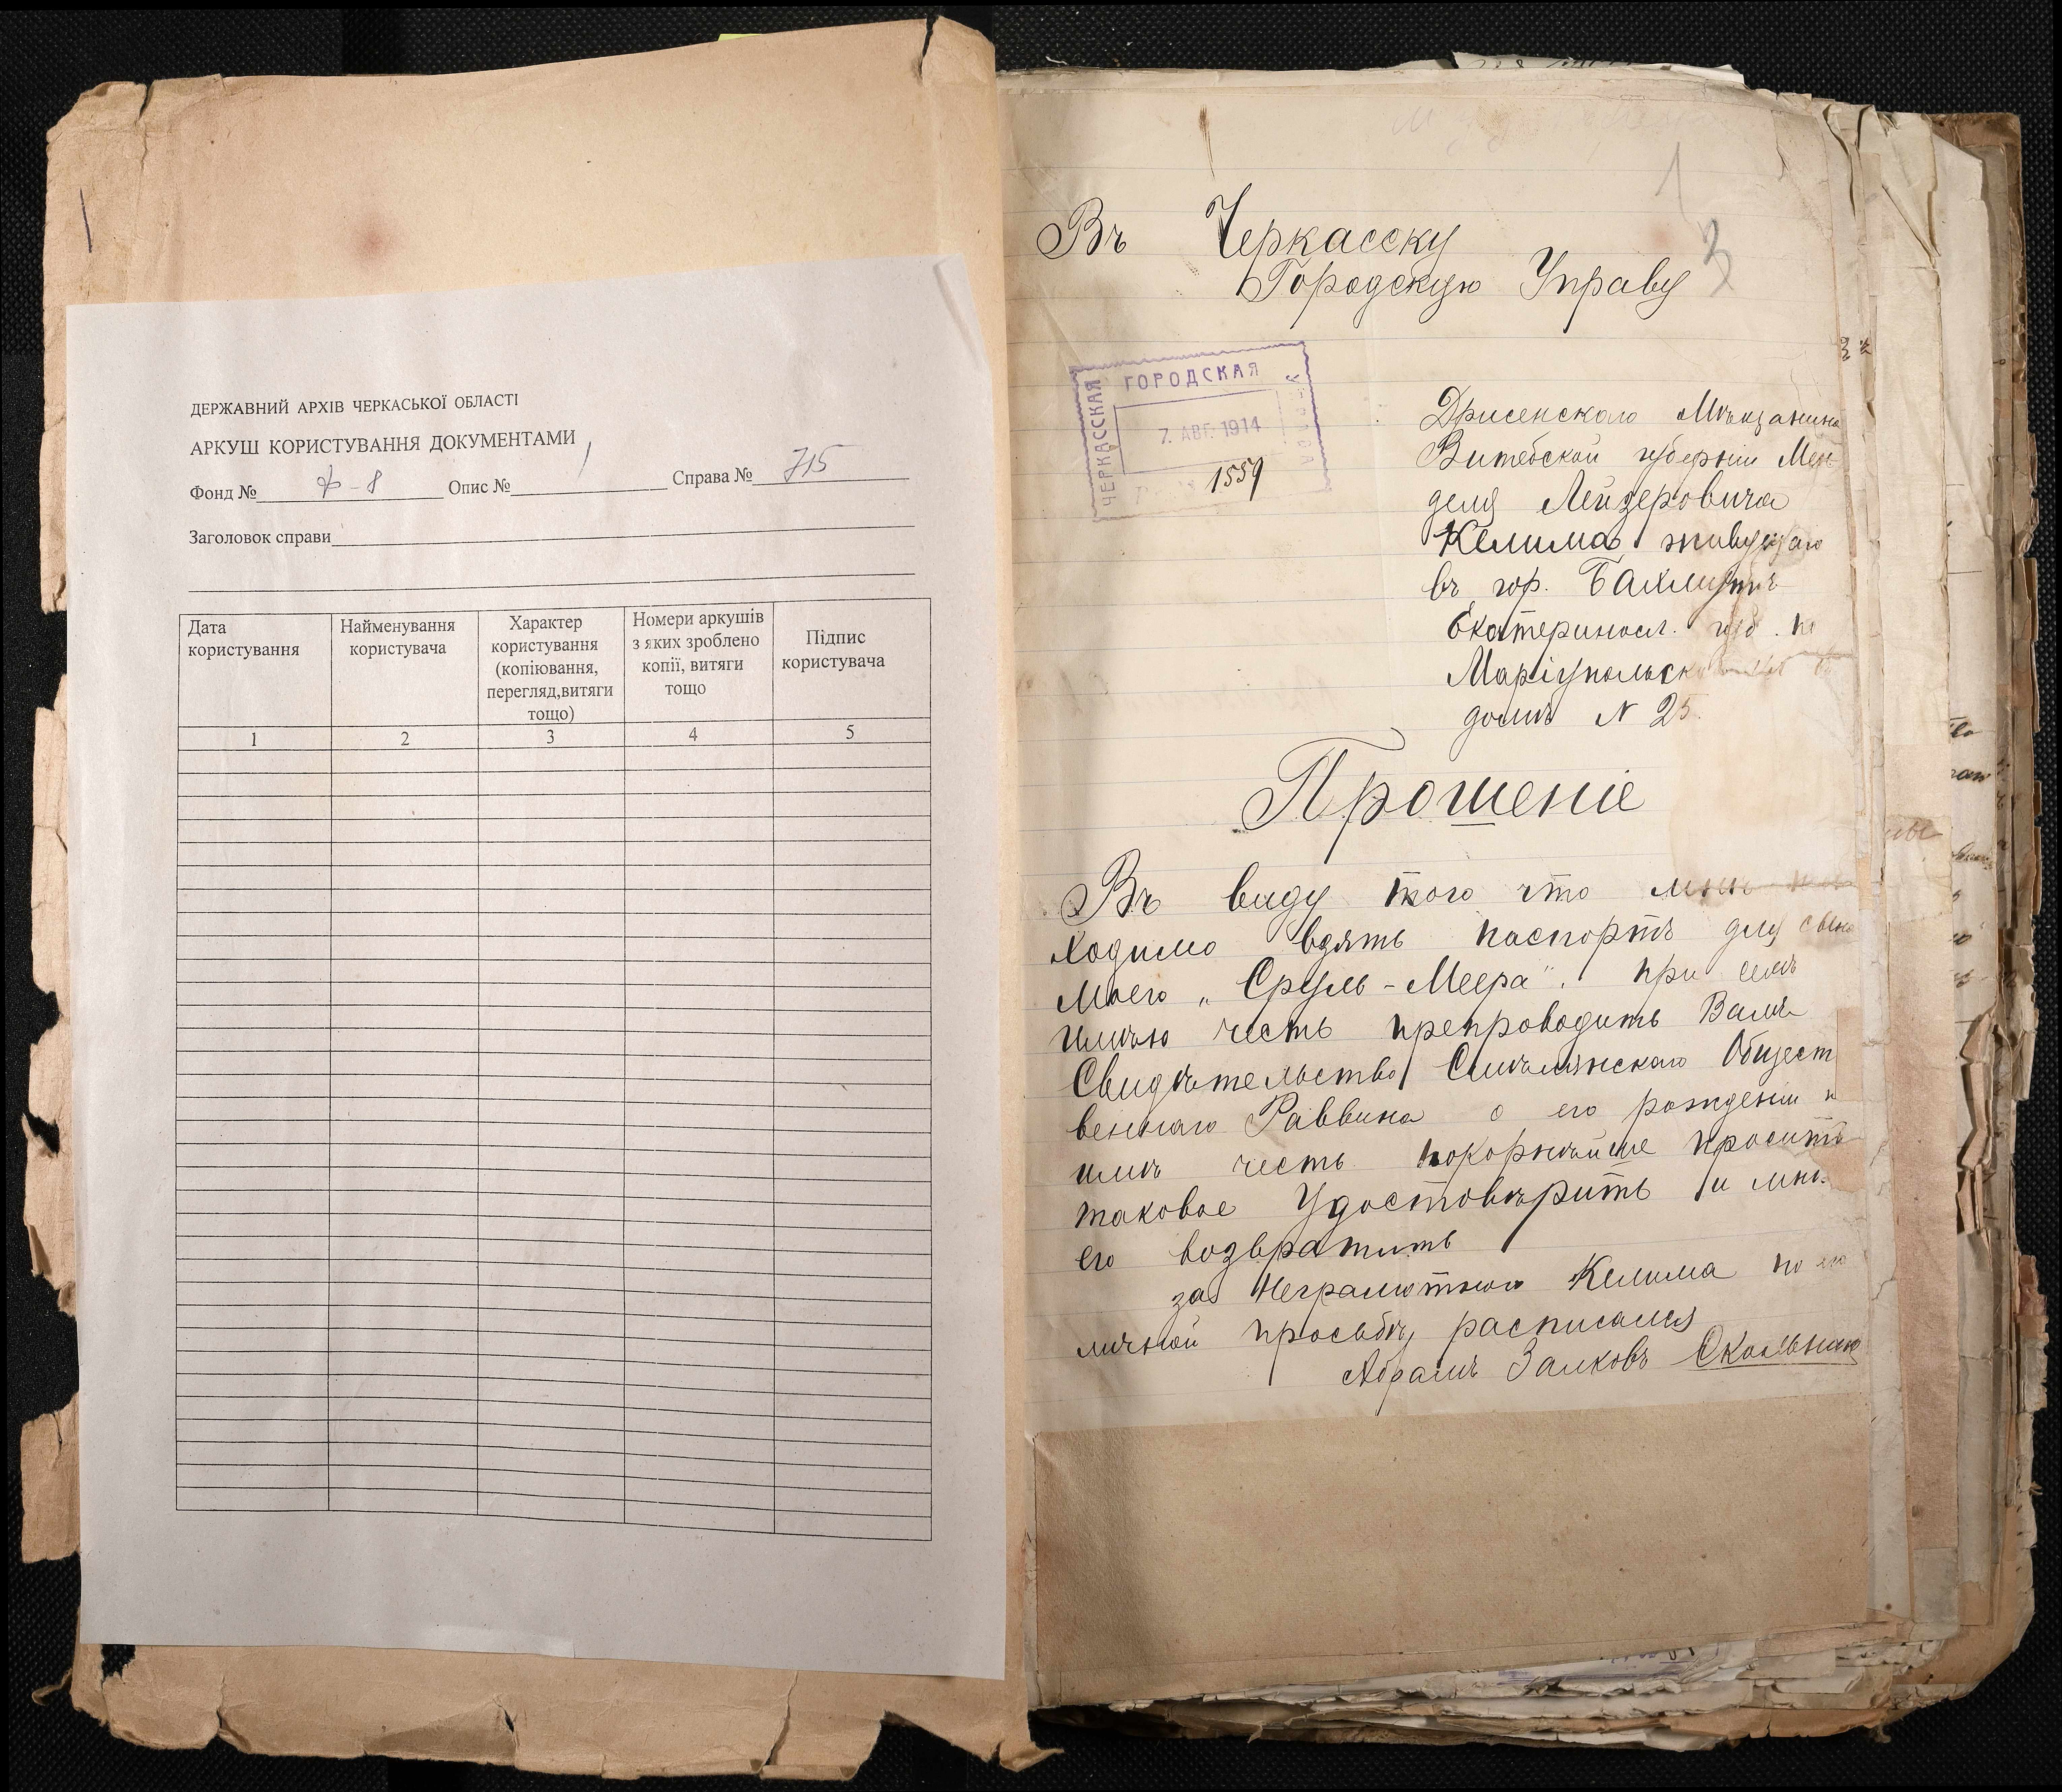 ДЕРЖАВНИЙ АРХІВ ЧЕРКАСЬКОЇ ОБЛАСТІ
АРКУШ КОРИСТУВАННЯ ДОКУМЕНТАМИ
Фонд № Ф-8 Опис № 1 Справа № 715
Заголовок справи
Дата користування
Найменування користувача
Характер користування (копіювання, перегляд,витяги тощо)
Номери аркушів з яких зроблено копії, витяги тощо
Підпис користувача
1 2 3 4 5
1
3
Въ Черкасску
Городскую Управу
ЧЕРКАССКАЯ
ГОРОДСКАЯ
7. АВГ. 1914
1559
Дрисенскаго Мѣщанина
Витебской губерніи Мен
деля Лейзеровича
Келима, живущаго
въ гор. Бахмутѣ
Екатериносл. губ. по
Маріупольск
домъ N 25.
Прошеніе
Въ виду того что мнѣ
ходимо взять паспортъ для сына
моего „Сруль-Меера". при семъ
имѣю честь препроводить Вамъ
Свидѣтельство Смѣлянскаго Общест
веннаго Раввина о его рожденіи и
имѣ честь покорнѣйше просить
таковое Удостовѣрить и мнѣ
его возвратить
за Неграмотного Келима по его
личной просьбѣ расписался
Абрамъ Залковъ Скольник